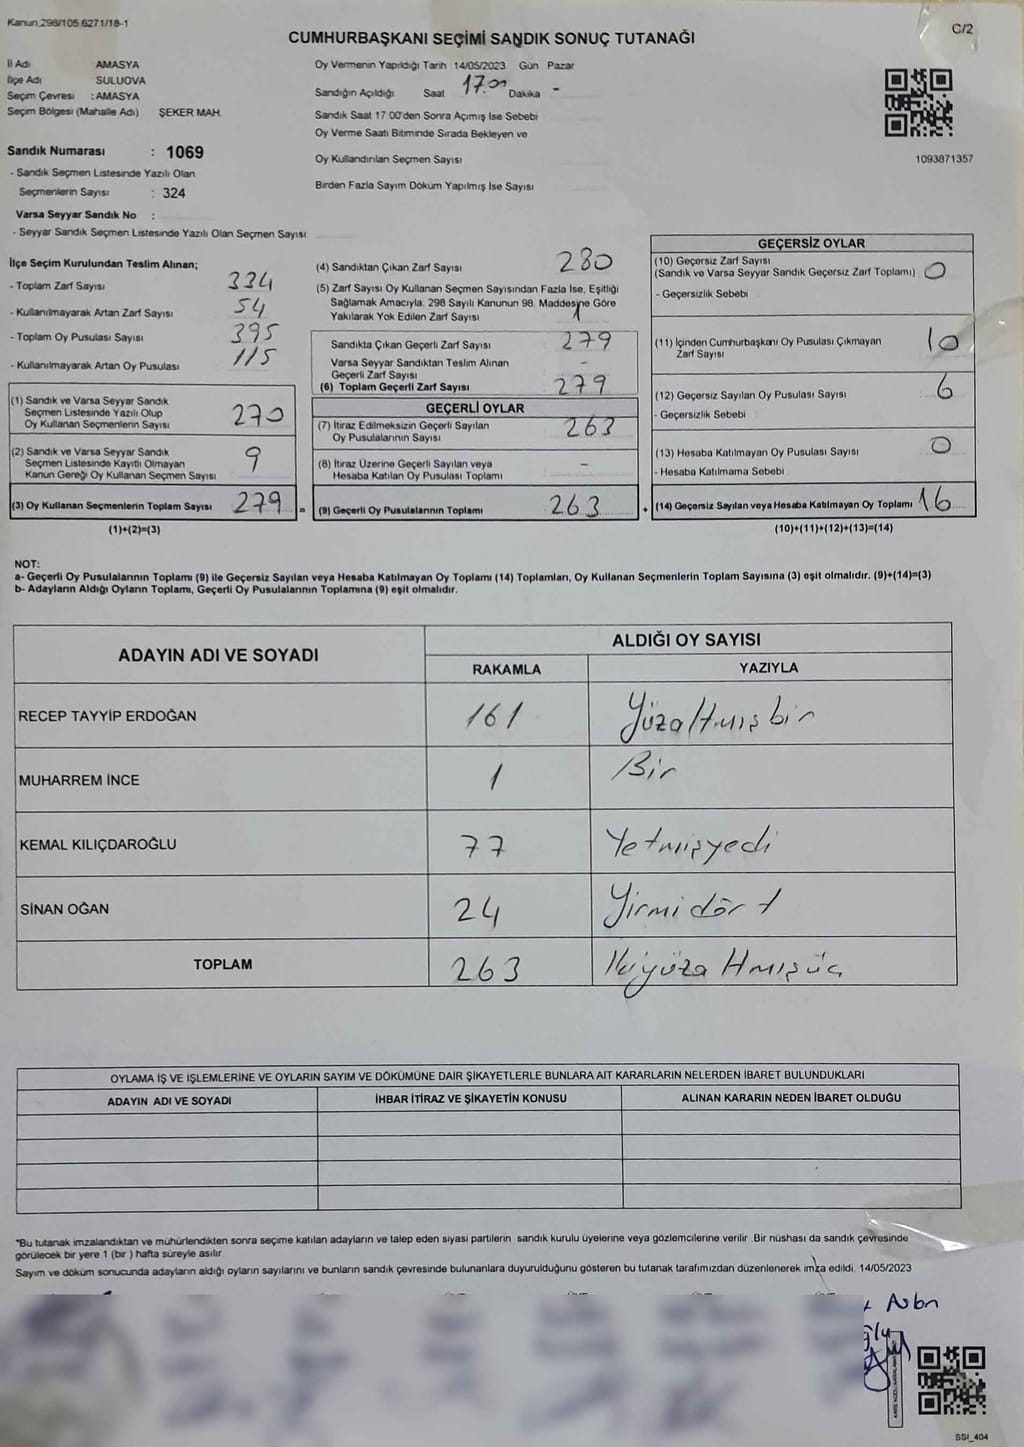 Kanun.298/105,6271/18-1
C/2
CUMHURBAŞKANI SEÇİMİ SANDIK SONUÇ TUTANAĞI
İl Adı AMASYA
İlçe Adı SULUOVA
Seçim Çevresi : AMASYA
Seçim Bölgesi (Mahalle Adı) ŞEKER MAH.
Sandık Numarası : 1069
- Sandık Seçmen Listesinde Yazılı Olan
Seçmenlerin Sayısı : 324
Varsa Seyyar Sandık No :
- Seyyar Sandık Seçmen Listesinde Yazılı Olan Seçmen Sayısı:
Oy Vermenin Yapıldığı Tarih 14/05/2023 Gün Pazar
Sandığın Açıldığı Saat 17.00 Dakika -
Sandık Saat 17:00'den Sonra Açımış İse Sebebi
Oy Verme Saati Bitiminde Sırada Bekleyen ve
Oy Kullandırılan Seçmen Sayısı
Birden Fazla Sayım Döküm Yapılmış İse Sayısı
1093871357
İlçe Seçim Kurulundan Teslim Alınan;
- Toplam Zarf Sayısı 334
- Kullanılmayarak Artan Zarf Sayısı 54
- Toplam Oy Pusulası Sayısı 395
- Kullanılmayarak Artan Oy Pusulası 115
(1) Sandık ve Varsa Seyyar Sandık
Seçmen Listesinde Yazılı Olup
Oy Kullanan Seçmenlerin Sayısı 270
(2) Sandık ve Varsa Seyyar Sandık
Seçmen Listesinde Kayıtlı Olmayan
Kanun Gereği Oy Kullanan Seçmen Sayısı 9
(3) Oy Kullanan Seçmenlerin Toplam Sayısı 279 =
(1)+(2)=(3)
(4) Sandıktan Çıkan Zarf Sayısı 280
(5) Zarf Sayısı Oy Kullanan Seçmen Sayısından Fazla İse, Eşitliği
Sağlamak Amacıyla, 298 Sayılı Kanunun 98. Maddesine Göre
Yakılarak Yok Edilen Zarf Sayısı 1
Sandıkta Çıkan Geçerli Zarf Sayısı 279
Varsa Seyyar Sandıktan Teslim Alınan
Geçerli Zarf Sayısı -
(6) Toplam Geçerli Zarf Sayısı 279
GEÇERLİ OYLAR
(7) İtiraz Edilmeksizin Geçerli Sayılan
Oy Pusulalarının Sayısı 263
(8) İtiraz Üzerine Geçerli Sayılan veya
Hesaba Katılan Oy Pusulası Toplamı -
(9) Geçerli Oy Pusulalarının Toplamı 263 +
GEÇERSİZ OYLAR
(10) Geçersiz Zarf Sayısı
(Sandık ve Varsa Seyyar Sandık Geçersiz Zarf Toplamı) 0
- Geçersizlik Sebebi
(11) İçinden Cumhurbaşkanı Oy Pusulası Çıkmayan
Zarf Sayısı 10
(12) Geçersiz Sayılan Oy Pusulası Sayısı 6
- Geçersizlik Sebebi
(13) Hesaba Katılmayan Oy Pusulası Sayısı 0
- Hesaba Katılmama Sebebi
(14) Geçersiz Sayılan veya Hesaba Katılmayan Oy Toplamı 16
(10)+(11)+(12)+(13)=(14)
NOT:
a- Geçerli Oy Pusulalarının Toplamı (9) ile Geçersiz Sayılan veya Hesaba Katılmayan Oy Toplamı (14) Toplamları, Oy Kullanan Seçmenlerin Toplam Sayısına (3) eşit olmalıdır. (9)+(14)=(3)
b- Adayların Aldığı Oyların Toplamı, Geçerli Oy Pusulalarının Toplamına (9) eşit olmalıdır.
ADAYIN ADI VE SOYADI ALDIĞI OY SAYISI
RAKAMLA YAZIYLA
RECEP TAYYİP ERDOĞAN 161 Yüzaltmışbir
MUHARREM İNCE 1 Bir
KEMAL KILIÇDAROĞLU 77 Yetmişyedi
SİNAN OĞAN 24 Yirmidört
TOPLAM 263 İkiyüzaltmışüç
OYLAMA İŞ VE İŞLEMLERİNE VE OYLARIN SAYIM VE DÖKÜMÜNE DAİR ŞİKAYETLERLE BUNLARA AİT KARARLARIN NELERDEN İBARET BULUNDUKLARI
ADAYIN ADI VE SOYADI İHBAR İTİRAZ VE ŞİKAYETİN KONUSU ALINAN KARARIN NEDEN İBARET OLDUĞU
"Bu tutanak imzalandıktan ve mühürlendikten sonra seçime katılan adayların ve talep eden siyasi partilerin sandık kurulu üyelerine veya gözlemcilerine verilir. Bir nüshası da sandık çevresinde
görülecek bir yere 1 (bir ) hafta süreyle asılır.
Sayım ve döküm sonucunda adayların aldığı oyların sayılarını ve bunların sandık çevresinde bulunanlara duyurulduğunu gösteren bu tutanak tarafımızdan düzenlenerek imza edildi. 14/05/2023
SSI_404